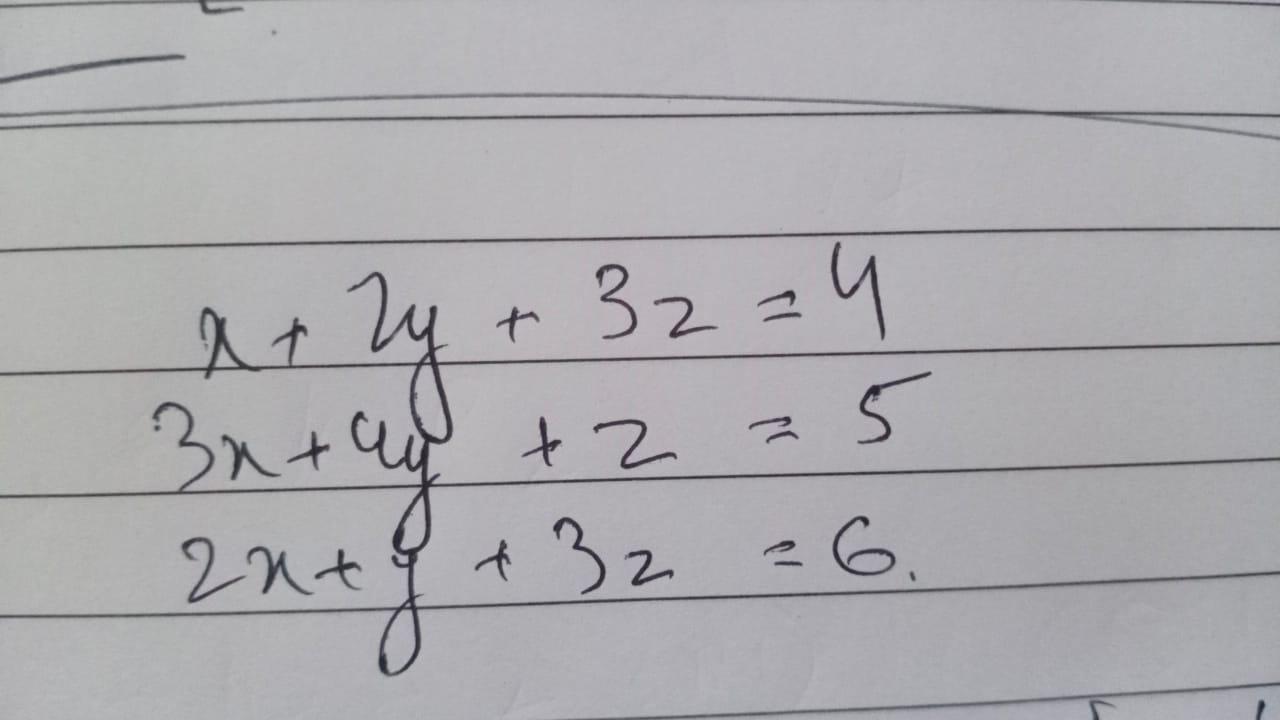 x + 2y + 3z = 4
3x + 4y + z = 5
2x + y + 3z = 6.